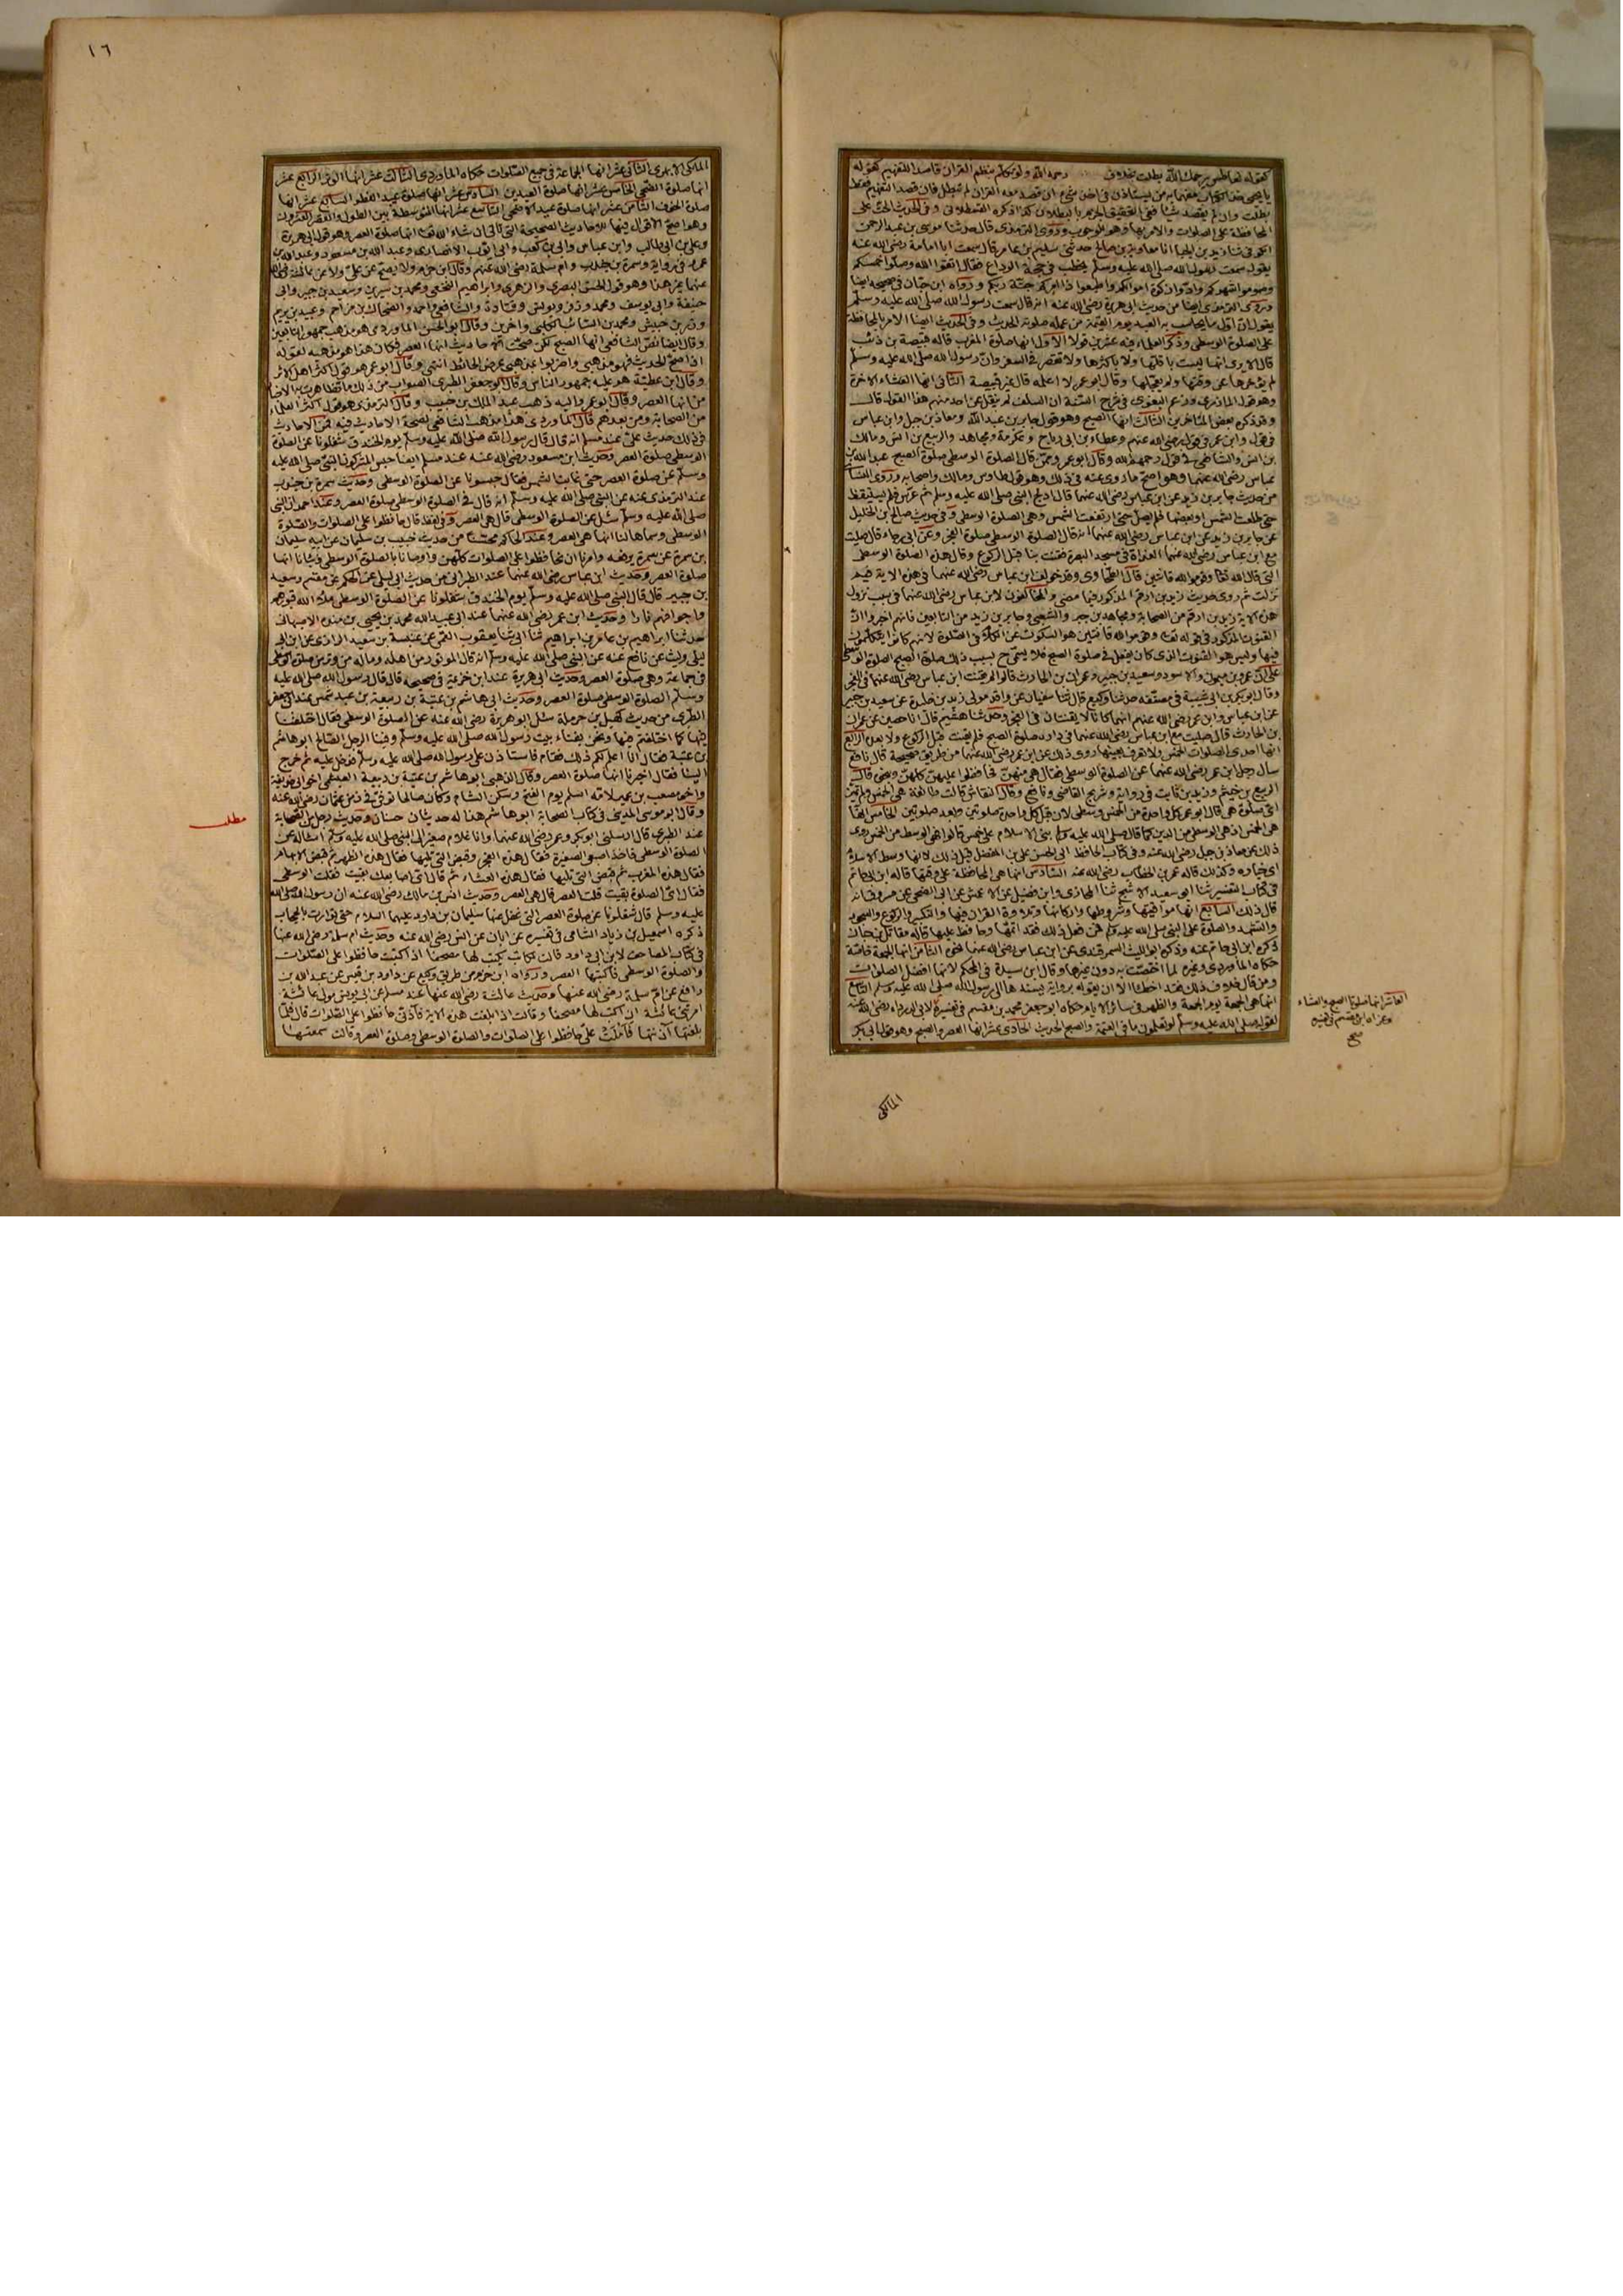 كقوله لعاطس يرحمك الله بطلت بخلاف رحمه الله ولو تكلم بنظم القرآن قاصدا للتفهيم كقوله
يا يحيى خذ الكتاب مفهما به من يستأذن في أخذ شيء إن قصد معه القرآن لم تبطل فإن قصد التفهيم فقط
بطلت وإن لم يقصد شيئا ففي التحقيق الجزم بالبطلان كذا ذكره القسطلاني وفي الحديث الحث على
المحافظة على الصلوات والأمر بها وهو للوجوب وروى الترمذي قال حدثنا موسى بن عبد الرحمن
الكوفي ثنا زيد بن الحباب أنا معاوية بن صالح حدثني سليم بن عامر قال سمعت أبا أمامة رضي الله عنه
يقول سمعت رسول الله صلى الله عليه وسلم يخطب في حجة الوداع فقال اتقوا الله وصلوا خمسكم
وصوموا شهركم وأدوا زكوة أموالكم وأطيعوا ذا أمركم جنة ربكم ورواه ابن حبان في صحيحه أيضا
وروى الترمذي أيضا من حديث أبي هريرة رضي الله عنه أنه قال سمعت رسول الله صلى الله عليه وسلم
يقول إن أول ما يحاسب به العبد يوم القيمة من عمله صلوته الحديث وفي الحديث أيضا الأمر بالمحافظة
على الصلوة الوسطى وذكر العلماء فيه عشرين قولا الأول أنها صلوة المغرب قاله قبيصة بن ذئب
قال ألا يرى أنها ليست بأقلها ولا بأكثرها ولا تقصر في السفر وأن رسول الله صلى الله عليه وسلم
لم يؤخرها عن وقتها ولم يعجلها وقال أبو عمر لا أعلمه قال غير قبيصة الثاني أنها العشاء الآخرة
وهو قول المازري وزعم البغوي في شرح السنة أن السلف لم ينقل عن أحد منهم هذا القول قال
وقد ذكره بعض المتأخرين الثالث أنها الصبح وهو قول جابر بن عبد الله ومعاذ بن جبل وابن عباس
في قول وابن عمر في قول رضي الله عنهم وعطاء بن أبي رباح وعكرمة ومجاهد والربيع بن أنس ومالك
بن أنس والشافعي في قول رحمهم الله وقال أبو عمر وممن قال الصلوة الوسطى صلوة الصبح عبد الله بن
عباس رضي الله عنهما وهو أصح ما روى عنه في ذلك وهو قول طاوس ومالك وأصحابه وروى النسائي
من حديث جابر بن زيد عن ابن عباس رضي الله عنهما قال أدلج النبي صلى الله عليه وسلم ثم عرس فلم يستيقظ
حتى طلعت الشمس أو بعضها فلم يصل حتى ارتفعت الشمس وهي الصلوة الوسطى وفي حديث صالح أبي الخليل
عن جابر بن زيد عن ابن عباس رضي الله عنهما أنه قال الصلوة الوسطى صلوة الفجر وعن أبي رجاء قال صليت
مع ابن عباس رضي الله عنهما الغداة في مسجد البصرة فقنت بنا قبل الركوع وقال هذه الصلوة الوسطى
التي قال الله تعالى وقوموا لله قانتين قال الطحاوي وقد خولف ابن عباس رضي الله عنهما في هذه الآية فيم
نزلت ثم روى حديث زيد بن أرقم المذكور فيما مضى والمخالفون لابن عباس رضي الله عنهما في سبب نزول
هذه الآية زيد بن أرقم من الصحابة ومجاهد بن جبر والشعبي وجابر بن زيد من التابعين فإنهم أخبروا أن
القنوت المذكور في قوله تعالى وقوموا لله قانتين هو السكوت عن الكلام في الصلوة لأنهم كانوا يتكلمون
فيها وليس هو القنوت الذي كان يفعل في صلوة الصبح فلا يسمى ح بسبب ذلك صلوة الصبح الصلوة الوسطى
على أن عمرو بن ميمون والأسود وسعيد بن جبير وعمران بن الحارث قالوا لم يقنت ابن عباس رضي الله عنهما في الفجر
وقال أبو بكر بن أبي شيبة في مصنفه حدثنا وكيع قال ثنا سفيان عن واقد مولى زيد بن خليدة عن سعيد بن جبير
عن ابن عباس وابن عمر رضي الله عنهم أنهما كانا لا يقنتان في الفجر وحدثنا هشيم قال أنا حصين عن عمران
بن الحارث قال صليت مع ابن عباس رضي الله عنهما في داره صلوة الصبح فلم يقنت قبل الركوع ولا بعده الرابع
أنها إحدى الصلوات الخمس ولا تعرف بعينها روى ذلك عن ابن عمر رضي الله عنهما من طريق صحيحة قال نافع
سأل رجل ابن عمر رضي الله عنهما عن الصلوة الوسطى فقال هي منهن فحافظوا عليهن كلهن وبنحوه قال
الربيع بن خيثم وزيد بن ثابت في رواية وشريح القاضي ونافع وقال النقاش قالت طائفة هي الخمس ولم تميز
أي صلوة هي قال أبو عمر كل واحدة من الخمس وسطى لأن قبل كل واحدة صلوتين وبعد صلوتين الخامس أنها
هي الخمس إذ هي الوسطى من الدين كما قال صلى الله عليه وسلم بني الإسلام على خمس قالوا فهي الوسط من الخمس روى
ذلك عن معاذ بن جبل رضي الله عنه وفي كتاب الحافظ أبي الحسن علي بن المفضل قيل ذلك لأنها وسط الإسلام
أي خياره وكذلك قاله عمر بن الخطاب رضي الله عنه السادس أنها هي المحافظة على وقتها قاله ابن أبي حاتم
في كتاب التفسير ثنا أبو سعيد الأشج ثنا المحاربي وابن فضيل عن الأعمش عن أبي الضحى عن مسروق أنه
قال ذلك السابع أنها مواقيتها وشروطها وأركانها وتلاوة القرآن فيها والتكبير والركوع والسجود
والتشهد والصلوة على النبي صلى الله عليه وسلم فمن فعل ذلك فقد أتمها وحافظ عليها قاله مقاتل بن حيان
ذكره ابن أبي حاتم عنه وذكر أبو الليث السمرقندي عن ابن عباس رضي الله عنهما نحوه الثامن أنها الجمعة خاصة
حكاه الماوردي وغيره لما اختصت به دون غيرها وقال ابن سيدة في المحكم لأنها أفضل الصلوات
ومن قال خلاف ذلك فقد أخطأ إلا أن يقوله برواية يسندها إلى رسول الله صلى الله عليه وسلم التاسع
أنها هي الجمعة يوم الجمعة والظهر في سائر الأيام حكاه أبو جعفر محمد بن مقسم في تفسيره لأبي الدرداء رضي الله عنه
لقوله صلى الله عليه وسلم لو تعلمون ما في العتمة والصبح الحديث الحادي عشر أنها العصر والصبح وهو قول أبي بكر
العاشر أنها صلوتا الصبح والعشاء
وعزاه ابن مقسم في تفسيره
صح
المالكي
١٦
المالكي الأبهري الثاني عشر أنها الجماعة في جميع الصلوات حكاه الماوردي الثالث عشر أنها الوتر الرابع عشر
أنها صلوة الضحى الخامس عشر أنها صلوة العيدين السادس عشر أنها صلوة عيد الفطر السابع عشر أنها
صلوة الخوف الثامن عشر أنها صلوة عيد الأضحى التاسع عشر أنها المتوسطة بين الطول والقصر العشرون
وهو أصح الأقوال فيها للأحاديث الصحيحة التي تأتي إن شاء الله تعالى أنها صلوة العصر وهو قول أبي هريرة
وعلي بن أبي طالب وابن عباس وأبي بن كعب وأبي أيوب الأنصاري وعبد الله بن مسعود وعبد الله بن
عمرو في رواية وسمرة بن جندب وأم سلمة رضي الله عنهم وقال ابن حزم ولا يصح عن علي ولا عن عائشة رضي الله
عنهما غير هذا وهو قول الحسن البصري والزهري وإبراهيم النخعي ومحمد بن سيرين وسعيد بن جبير وأبي
حنيفة وأبي يوسف ومحمد وزفر ويونس وقتادة والشافعي وأحمد والضحاك بن مزاحم وعبيد بن مريم
وزر بن حبيش ومحمد بن السائب الكلبي وآخرين وقال أبو الحسن الماوردي هو مذهب جمهور التابعين
وقال أيضا نص الشافعي أنها الصبح لكن صحت الأحاديث أنها العصر فكان هذا هو مذهبه لقوله
إذا صح الحديث فهو مذهبي واضربوا مذهبي عرض الحائط انتهى وقال أبو عمر هو قول أكثر أهل الأثر
وقال ابن عطية هو عليه جمهور الناس وقال أبو جعفر الطبري الصواب من ذلك ما تظاهرت به الأخبار
من أنها العصر وقال أبو عمر وإليه ذهب عبد الملك بن حبيب وقال الترمذي هو قول أكثر العلماء
من الصحابة ومن بعدهم قال الماوردي هذا مذهب الشافعي لصحة الأحاديث فيه فمن الأحاديث
في ذلك حديث علي عند مسلم أنه قال قال رسول الله صلى الله عليه وسلم يوم الخندق شغلونا عن الصلوة
الوسطى صلوة العصر وحديث ابن مسعود رضي الله عنه عند مسلم أيضا حبس المشركون النبي صلى الله عليه
وسلم عن صلوة العصر حتى غابت الشمس فقال حبسونا عن الصلوة الوسطى وحديث سمرة بن جندب
عند الترمذي عنه عن النبي صلى الله عليه وسلم أنه قال في الصلوة الوسطى صلوة العصر وعند أحمد أن النبي
صلى الله عليه وسلم سئل عن الصلوة الوسطى قال هي العصر وفي لفظ قال حافظوا على الصلوات والصلوة
الوسطى وسماها لنا أنها هي العصر وعند الحاكم محسنا من حديث خبيب بن سليمان عن أبيه سليمان
بن سمرة عن سمرة يرفعه وأمرنا أن نحافظ على الصلوات كلهن وأوصانا بالصلوة الوسطى ونبأنا أنها
صلوة العصر وحديث ابن عباس رضي الله عنهما عند الطبراني من حديث ابن أبي ليلى عن الحكم عن مقسم وسعيد
بن جبير قال قال النبي صلى الله عليه وسلم يوم الخندق شغلونا عن الصلوة الوسطى ملأ الله قبورهم
وأجوافهم نارا وحديث ابن عمر رضي الله عنهما عند أبي عبيد الله محمد بن يحيى بن منده الأصبهاني
حدثنا إبراهيم بن عامر بن إبراهيم ثنا أبي ثنا يعقوب القمي عن عنبسة بن سعيد الرازي عن ابن أبي
ليلى وليث عن نافع عنه عن النبي صلى الله عليه وسلم أنه قال الموتور من أهله وماله من وتر من صلوة الوسطى
في جماعة وهي صلوة العصر وحديث أبي هريرة عند ابن خزيمة في صحيحه قال قال رسول الله صلى الله عليه
وسلم الصلوة الوسطى صلوة العصر وحديث أبي هاشم بن عتبة بن ربيعة بن عبد شمس عند أبي جعفر
الطبري من حديث كهيل بن حرملة سئل أبو هريرة رضي الله عنه عن الصلوة الوسطى فقال اختلفنا
فيها كما اختلفتم فيها ونحن بفناء بيت رسول الله صلى الله عليه وسلم وفينا الرجل الصالح أبو هاشم
بن عتبة فقال أنا أعلم لكم ذلك فقام فاستأذن على رسول الله صلى الله عليه وسلم فدخل عليه ثم خرج
إلينا فقال أخبرنا أنها صلوة العصر وقال الذهبي أبو هاشم بن عتبة بن ربيعة العبشمي أخو أبي حذيفة
وأخو مصعب بن عمير لأمه أسلم يوم الفتح وسكن الشام وكان صالحا توفي في زمن عثمان رضي الله عنه
وقال أبو موسى المديني في كتاب الصحابة أبو هاشم هذا له حديثان حسنان وحديث رجل من الصحابة
عند الطبري قال أرسلني أبو بكر وعمر رضي الله عنهما وأنا غلام صغير إلى النبي صلى الله عليه وسلم أسأله عن
الصلوة الوسطى فأخذ أصبعي الصغيرة فقال هذه الفجر وقبض التي تليها فقال هذه الظهر ثم قبض الإبهام
فقال هذه المغرب ثم قبض التي تليها فقال هذه العشاء ثم قال أي أصابعك بقيت فقلت الوسطى
فقال أي الصلوة بقيت قلت العصر قال هي العصر وحديث أنس بن مالك رضي الله عنه أن رسول الله صلى الله
عليه وسلم قال شغلونا عن صلوة العصر التي غفل عنها سليمان بن داود عليهما السلام حتى توارت بالحجاب
ذكره إسمعيل بن زياد الشامي في تفسيره عن أبان عن أنس رضي الله عنه وحديث أم سلمة رضي الله عنها
في كتاب المصاحف لابن أبي داود قالت لكاتب يكتب لها مصحفا إذا كتبت حافظوا على الصلوات
والصلوة الوسطى فاكتبها العصر ورواه ابن حزم من طريق وكيع عن داود بن قيس عن عبد الله بن
رافع عن أم سلمة رضي الله عنها وحديث عائشة رضي الله عنها عند مسلم عن أبي يونس مولى عائشة
أمرتني عائشة أن أكتب لها مصحفا وقالت إذا بلغت هذه الآية فآذني حافظوا على الصلوات قال فلما
بلغتها آذنتها فأملت علي حافظوا على الصلوات والصلوة الوسطى وصلوة العصر وقالت سمعتها
مطلب